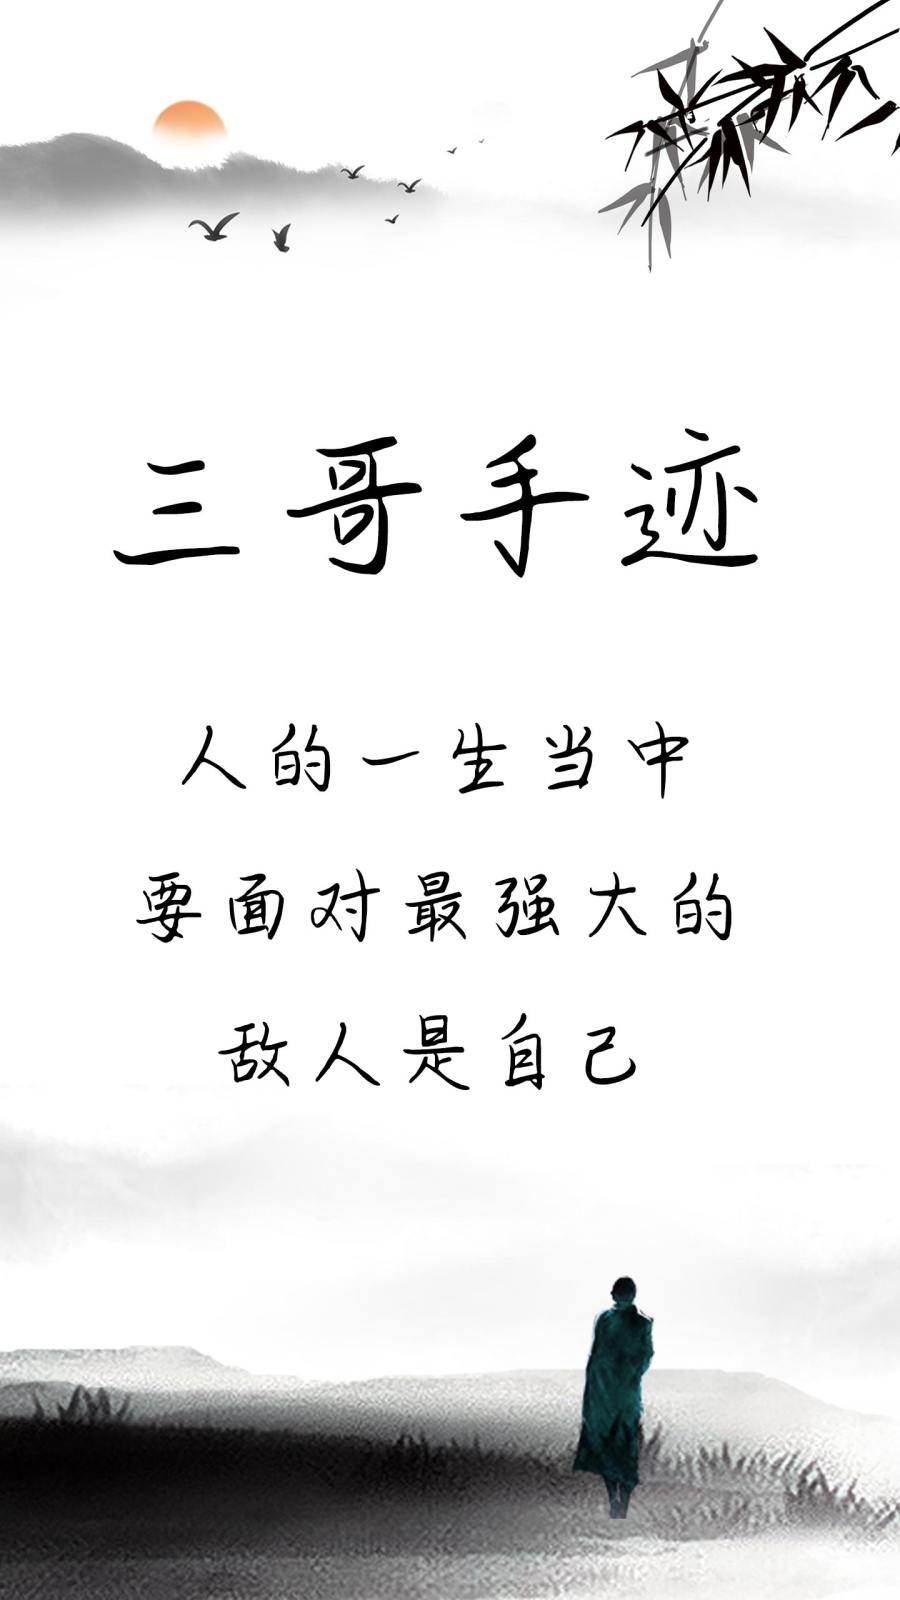 三哥手迹
人的一生当中
要面对最强大的
敌人是自己